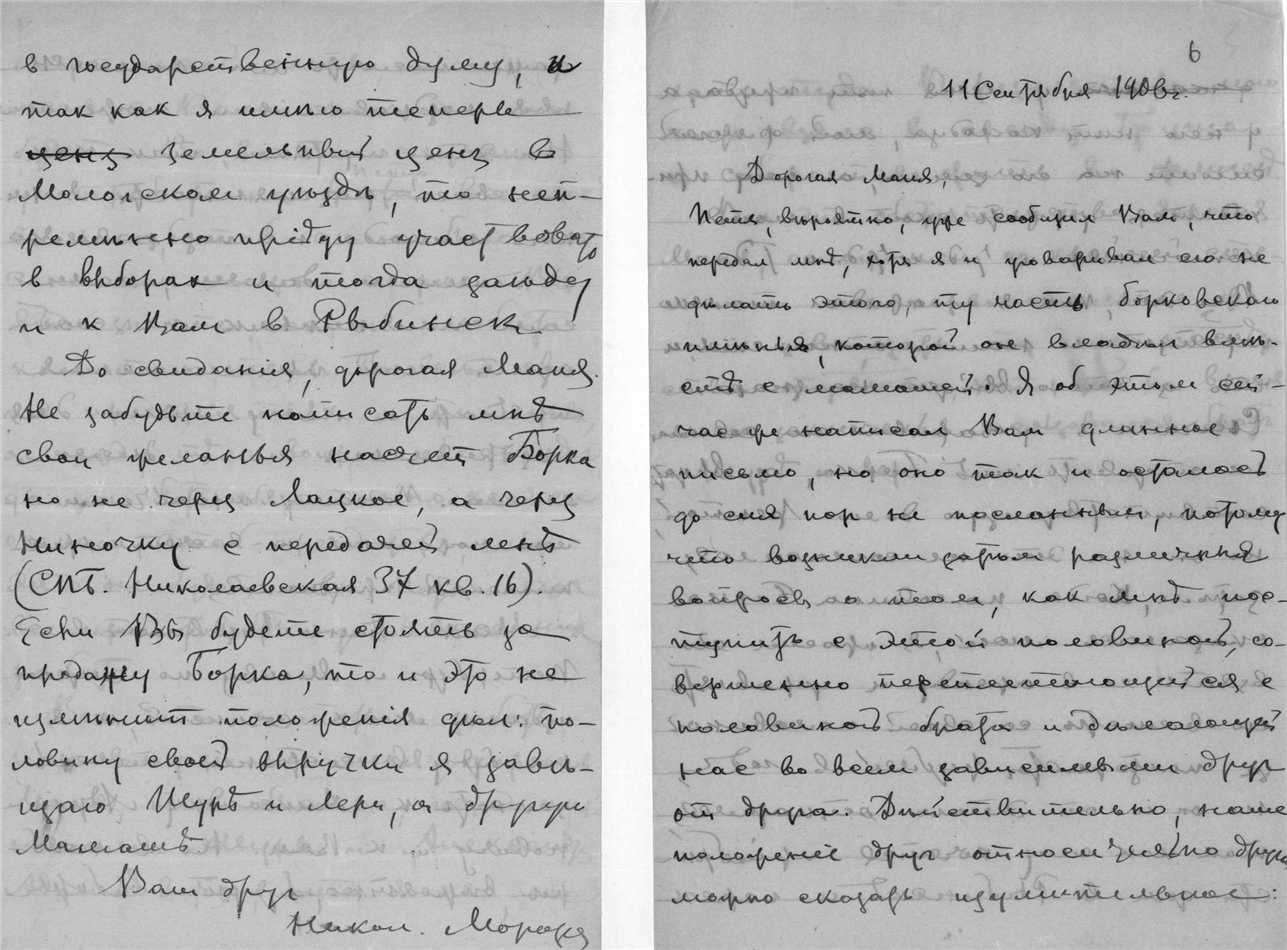 в государственную думу, и
так как я имѣю теперь
ценз земельный ценз в
Мологском уѣздѣ, то неп-
ремѣнно прiѣду участвовать
в выборах и тогда заѣду
и к Вам в Рыбинск
До свиданiя, дорогая Маня.
Не забудьте написать мнѣ
свои желанья насчет Борка
но не через Лацкое, а через
Ниночку с передачей мнѣ
(СПБ. Николаевская 37 кв. 16).
Если Вы будете стоять за
продажу Борка, то и это не
измѣнит положенiя дѣл: по-
ловину своей выручки я завѣ-
щаю Шурѣ и Лерѣ, а другую
Мамашѣ
Ваш друг
Никол. Морозов
6
11 Сентября 1906 г.
Дорогая Маня,
Петя, вѣроятно, уже сообщил Вам, что
передал мнѣ, хотя я и уговаривал его не
дѣлать этого, ту часть борковского
имѣнья, которой он владѣл вмѣ-
стѣ с мамашей. Я об этом сей-
час же написал Вам длинное
письмо, но оно так и осталось
до сих пор не посланным, потому
что возникли затѣм различные
вопросы о том, как мнѣ пос-
тупить с этой половиной, со-
вершенно переплетающейся с
половиной брата и дѣлающей
нас во всем зависимыми друг
от друга. Дѣйствительно, наше
положенiе друг относительно друга
можно сказать изумительное: